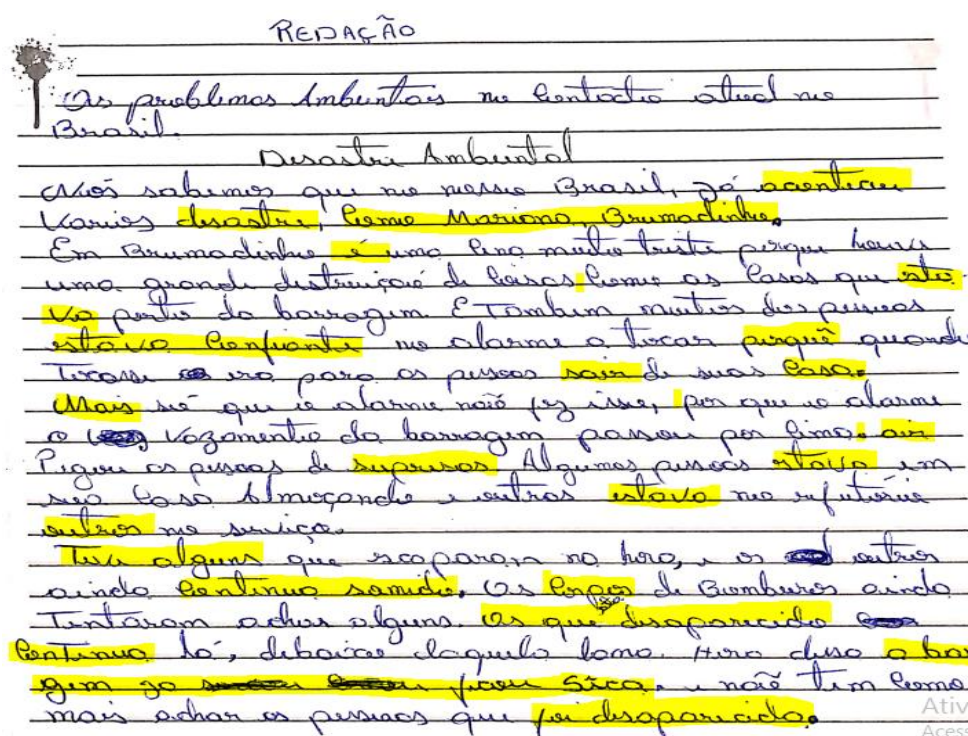 REDAÇÃO
Os problemas Ambientais no Contexto atual no
Brasil.
Desastre Ambiental
Nós sabemos que no nosso Brasil, já aconteceu
Varios desastre, Como Mariana, Brumadinho.
Em Brumadinho é uma muito triste porque houve
uma grande distruição de Coisas Como as Casas que esta-
va perto da barragem. E Tambem muitos das pessoas
estava Confiante no alarme a tocar porquê quando
Tocasse era para as pessoas sair de suas Casa.
Mais só que o alarme naõ fez isso, por que o alarme
o Vazamento da barragem passou por Cima. air
Pegou as pessoas de suprisas Algumas pessoas estava em
sua Casa Almoçando e outros estava no refutório
outros no serviço.
Teve alguns que scaparam na hora, e os outros
ainda Continua somido. Os de Bombeiros ainda
Tentaram achar alguns. Os que disaparecido
Continua lá, debaixo daquela lama. disso a bar
gem ja ficou Sica. e naõ tem Como
mais achar as pessoas que foi disaparecida.
Ativ
Acess